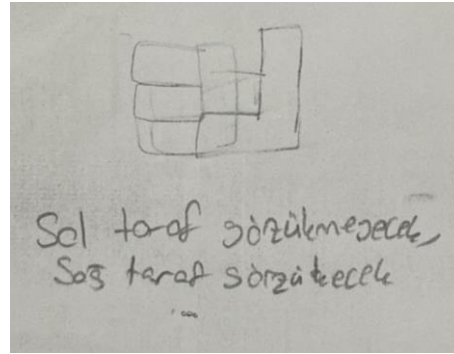 Sol taraf gözükmeyecek,
Sağ taraf gözükecek
...